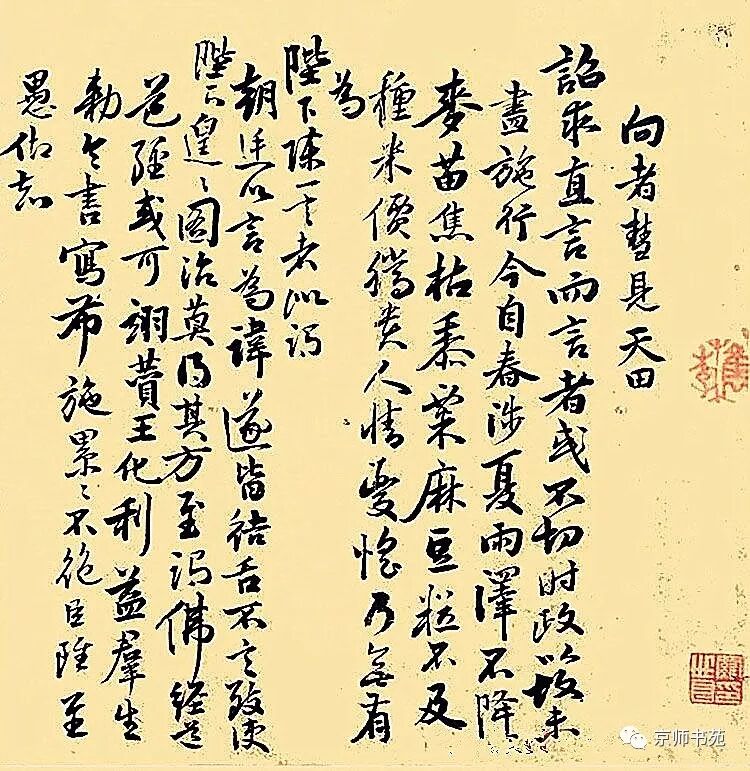 向者彗見天田
詔求直言而言者或不切时政以故未
盡施行今自春涉夏雨澤不降
麥苗焦枯黍粟麻豆粒不及
種米價騰貴人情憂惶乃無有
為
陛下陳一者似謂
朝廷以言為諱遂皆結舌不言致使
陛下遑〻圖治莫得其方至謂佛經
經或可翊賛王化利益羣生
勅令書寫布施累〻不絕臣雖至
愚知
京师书苑